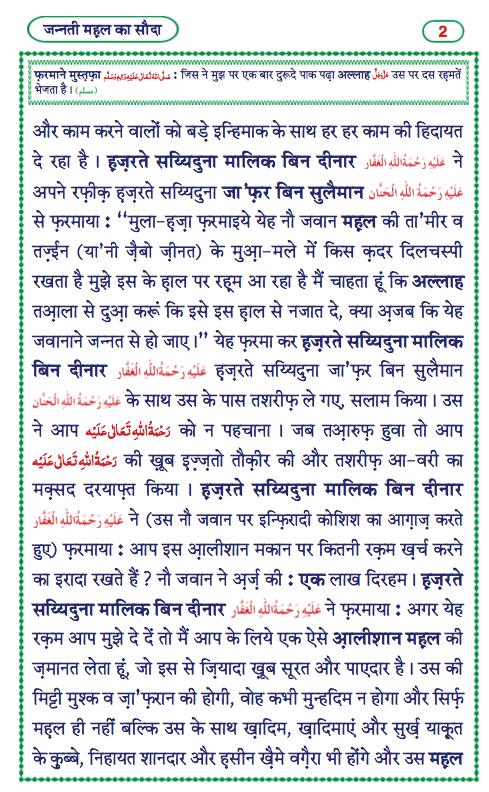 जन्नती महल का सौदा
2
फ़रमाने मुस्तफ़ा صَلَّى اللهُ تَعَالٰى عَلَيْهِ وَاٰلِهٖ وَسَلَّم : जिस ने मुझ पर एक बार दुरूदे पाक पढ़ा अल्लाह عَزَّوَجَلَّ उस पर दस रहमतें
भेजता है । (مسلم)
और काम करने वालों को बड़े इन्हिमाक के साथ हर हर काम की हिदायत
दे रहा है । ह़ज़रते सय्यिदुना मालिक बिन दीनार عَلَيْهِ رَحْمَةُ اللهِ الْغَفَّار ने
अपने रफ़ीक़ ह़ज़रते सय्यिदुना जा'फ़र बिन सुलैमान عَلَيْهِ رَحْمَةُ اللهِ الْحَنَّان
से फ़रमाया : ‘‘मुला-ह़ज़ा फ़रमाइये येह नौ जवान महल की ता'मीर व
तज़्ईन (या'नी ज़ैबो ज़ीनत) के मुआ़-मले में किस क़दर दिलचस्पी
रखता है मुझे इस के ह़ाल पर रह़्म आ रहा है मैं चाहता हूं कि अल्लाह
तआ़ला से दुआ़ करूं कि इसे इस ह़ाल से नजात दे, क्या अ़जब कि येह
जवानाने जन्नत से हो जाए।’’ येह फ़रमा कर ह़ज़रते सय्यिदुना मालिक
बिन दीनार عَلَيْهِ رَحْمَةُ اللهِ الْغَفَّار ह़ज़रते सय्यिदुना जा'फ़र बिन सुलैमान
عَلَيْهِ رَحْمَةُ اللهِ الْحَنَّان के साथ उस के पास तशरीफ़ ले गए, सलाम किया । उस
ने आप رَحْمَةُ اللهِ تَعَالٰى عَلَيْه को न पहचाना । जब तआ़रुफ़ हुवा तो आप
رَحْمَةُ اللهِ تَعَالٰى عَلَيْه की ख़ूब इ़ज़्ज़तो तौक़ीर की और तशरीफ़ आ-वरी का
मक़्सद दरयाफ़्त किया । ह़ज़रते सय्यिदुना मालिक बिन दीनार
عَلَيْهِ رَحْمَةُ اللهِ الْغَفَّار ने (उस नौ जवान पर इन्फ़िरादी कोशिश का आग़ाज़ करते
हुए) फ़रमाया : आप इस आ़लीशान मकान पर कितनी रक़म ख़र्च करने
का इरादा रखते हैं ? नौ जवान ने अ़र्ज़ की : एक लाख दिरहम । ह़ज़रते
सय्यिदुना मालिक बिन दीनार عَلَيْهِ رَحْمَةُ اللهِ الْغَفَّار ने फ़रमाया : अगर येह
रक़म आप मुझे दे दें तो मैं आप के लिये एक ऐसे आ़लीशान महल की
ज़मानत लेता हूं, जो इस से ज़ियादा ख़ूब सूरत और पाएदार है । उस की
मिट्टी मुश्क व ज़ा'फ़रान की होगी, वोह कभी मुन्हदिम न होगा और सिर्फ़
महल ही नहीं बल्कि उस के साथ ख़ादिम, ख़ादिमाएं और सुर्ख़ याक़ूत
के क़ुब्बे, निहायत शानदार और ह़सीन ख़ैमे वग़ैरा भी होंगे और उस महल